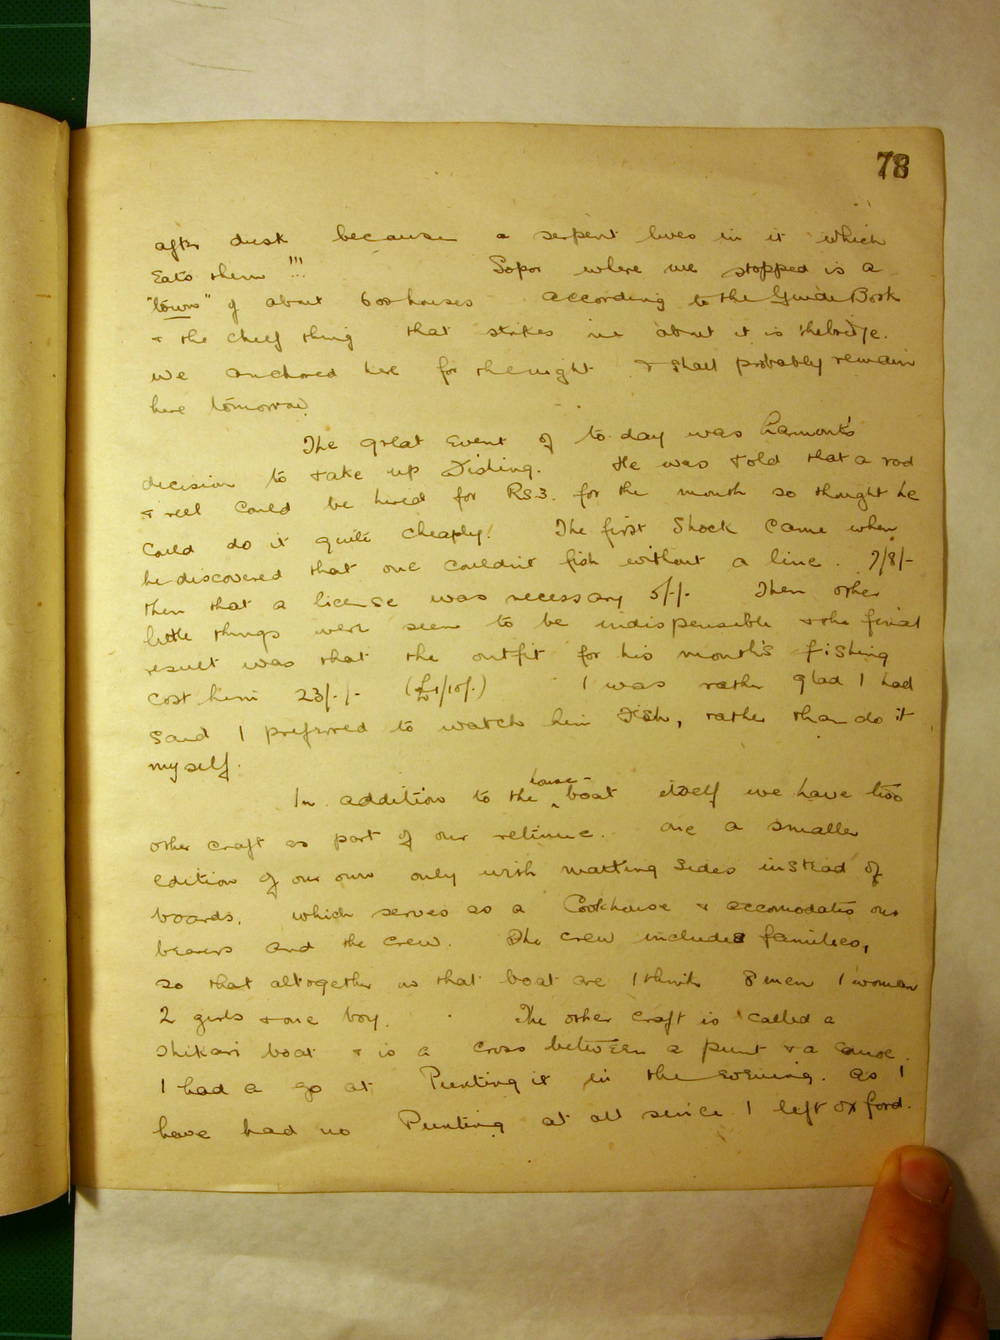 78
after dusk because a serpent lives in it which
Eats them !!! Sopor where we stopped is a
"town" of about 600 houses according to the Guide Book
& the cheif thing that strikes me about it is the bridge.
we anchored here for the night & shall probably remain
here tomorrow
The great Event of to day was Lamont's
decision to take up Fishing. He was told that a rod
& reel could be hired for Rs 3. for the month so thought he
could do it quite cheaply! The first Shock came when
he discovered that one couldn't fish without a line. 7/8/-
then that a license was necessary 5/-/-. Then other
little things were seen to be indispensible & the final
result was that the outfit for his month's fishing
cost him 23/-/- (£1/10/-) I was rather glad I had
said I preferred to watch him Fish, rather than do it
myself.
In addition to the house-boat itself we have two
other craft as part of our retinue. one a smaller
edition of our own only with matting sides instead of
boards, which serves as a Cookhouse & accomodates our
bearers and the crew. The crew includes families,
so that altogether in that boat are I think 8 men 1 woman
2 girls & one boy. The other craft is called a
shikari boat & is a cross between a punt & a canoe.
I had a go at Punting it in the evening. as I
have had no Punting at all since I left Oxford.